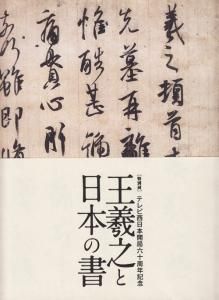 羲之頓首
先墓再離
惟酷甚號
痛貫心肝
奈何雖即脩
【特別展】テレビ西日本開局六十周年記念
王羲之と
日本の書